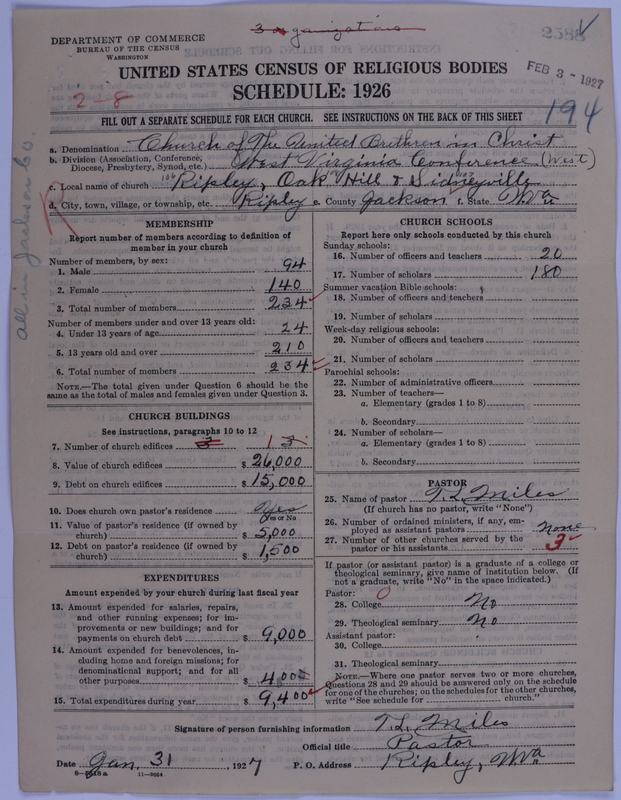 3 organizations
2588
DEPARTMENT OF COMMERCE
BUREAU OF THE CENSUS
WASHINGTON
FEB 3 - 1927
UNITED STATES CENSUS OF RELIGIOUS BODIES
SCHEDULE: 1926
2-8
194
FILL OUT A SEPARATE SCHEDULE FOR EACH CHURCH. SEE INSTRUCTIONS ON THE BACK OF THIS SHEET
a. Denomination Church of The United Brethren in Christ
b. Division (Association, Conference, Diocese, Presbytery, Synod, etc.) West Virginia Conference (West)
c. Local name of church Ripley, Oak Hill & Sidneyville
d. City, town, village, or township, etc. Ripley e. County Jackson f. State W.Va
all in Jackson Co.
MEMBERSHIP
Report number of members according to definition of
member in your church
Number of members, by sex:
1. Male 94
2. Female 140
3. Total number of members 234
Number of members under and over 13 years old:
4. Under 13 years of age 24
5. 13 years old and over 210
6. Total number of members 234
NOTE.—The total given under Question 6 should be the
same as the total of males and females given under Question 3.
CHURCH BUILDINGS
See instructions, paragraphs 10 to 12
7. Number of church edifices 3 1 3
8. Value of church edifices $ 26,000
9. Debt on church edifices $ 15,000
10. Does church own pastor's residence Yes
Yes or No
11. Value of pastor's residence (if owned by
church) $ 5,000
12. Debt on pastor's residence (if owned by
church) $ 1,500
EXPENDITURES
Amount expended by your church during last fiscal year
13. Amount expended for salaries, repairs,
and other running expenses; for im-
provements or new buildings; and for
payments on church debt $ 9,000
14. Amount expended for benevolences, in-
cluding home and foreign missions; for
denominational support; and for all
other purposes $ 400
15. Total expenditures during year $ 9,400
CHURCH SCHOOLS
Report here only schools conducted by this church
Sunday schools:
16. Number of officers and teachers 20
17. Number of scholars 180
Summer vacation Bible schools:
18. Number of officers and teachers
19. Number of scholars
Week-day religious schools:
20. Number of officers and teachers
21. Number of scholars
Parochial schools:
22. Number of administrative officers
23. Number of teachers—
a. Elementary (grades 1 to 8)
b. Secondary
24. Number of scholars—
a. Elementary (grades 1 to 8)
b. Secondary
PASTOR
25. Name of pastor T. L. Miles
(If church has no pastor, write "None")
26. Number of ordained ministers, if any, em-
ployed as assistant pastors None
27. Number of other churches served by the
pastor or his assistants 3
If pastor (or assistant pastor) is a graduate of a college or
theological seminary, give name of institution below. (If
not a graduate, write "No" in the space indicated.)
Pastor: 0
28. College No
29. Theological seminary No
Assistant pastor:
30. College
31. Theological seminary
NOTE.—Where one pastor serves two or more churches,
Questions 28 and 29 should be answered only on the schedule
for one of the churches; on the schedules for the other churches,
write "See schedule for church."
Signature of person furnishing information T. L. Miles
Official title Pastor
Date Jan, 31, 1927 P. O. Address Ripley, W.Va
11—9064